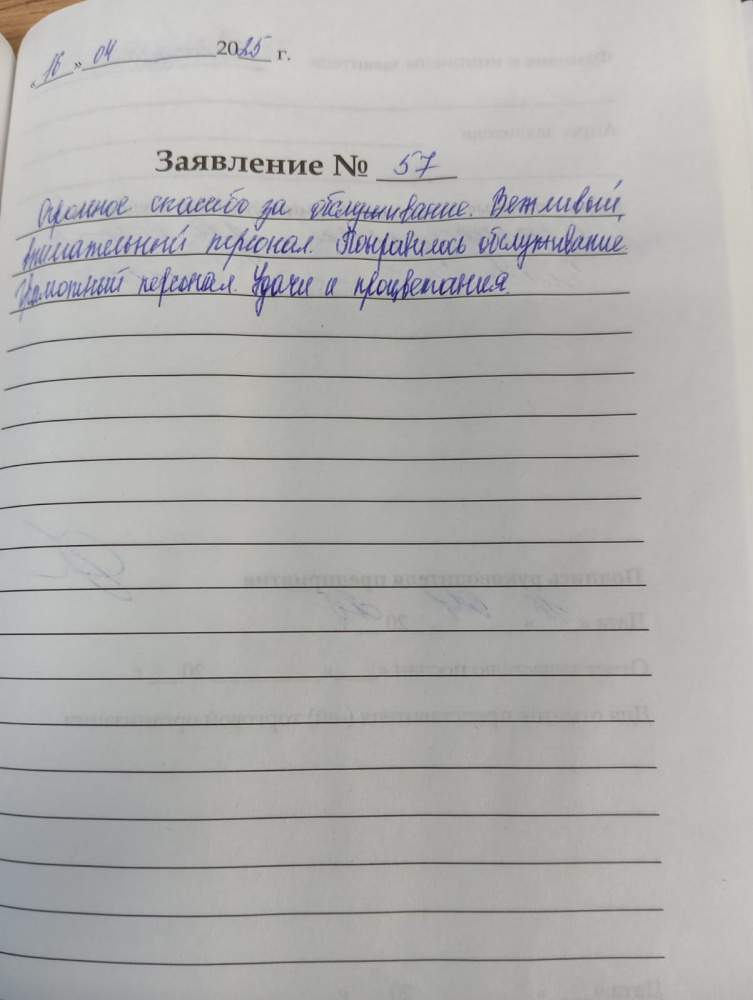 «16» 04 2025 г.
Заявление № 57
Огромное спасибо за обслуживание. Вежливый,
внимательный персонал. Понравилось обслуживание.
Грамотный персонал. Удачи и процветания.